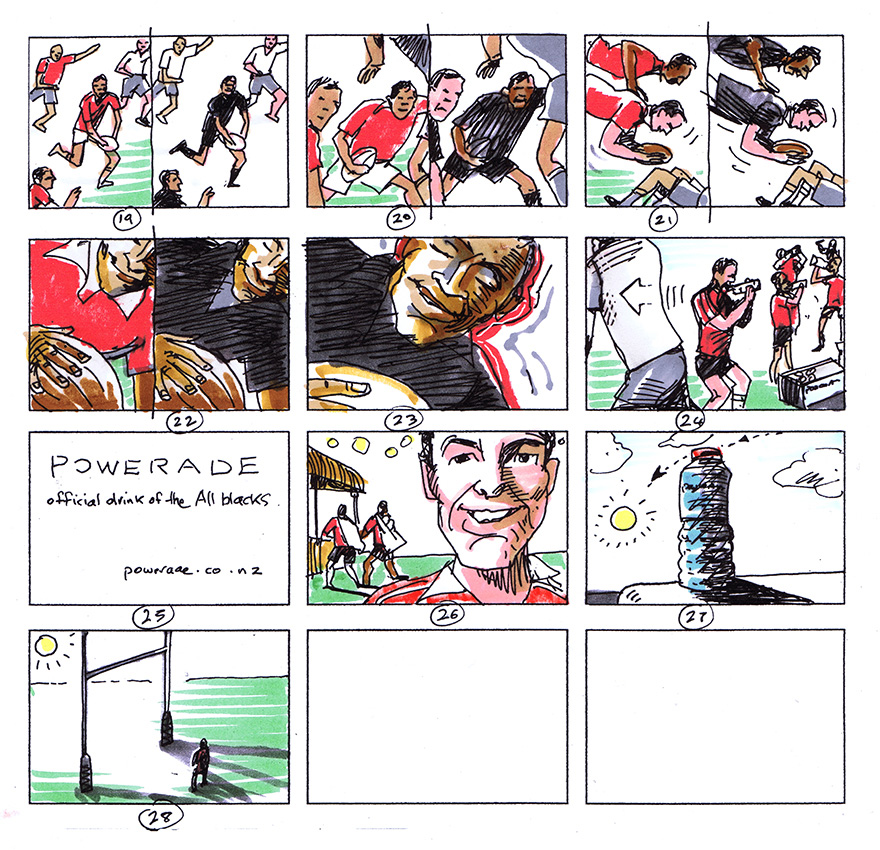 19
20
21
22
23
24
POWERADE
official drink of the All blacks.
powerade.co.nz
25
26
27
28